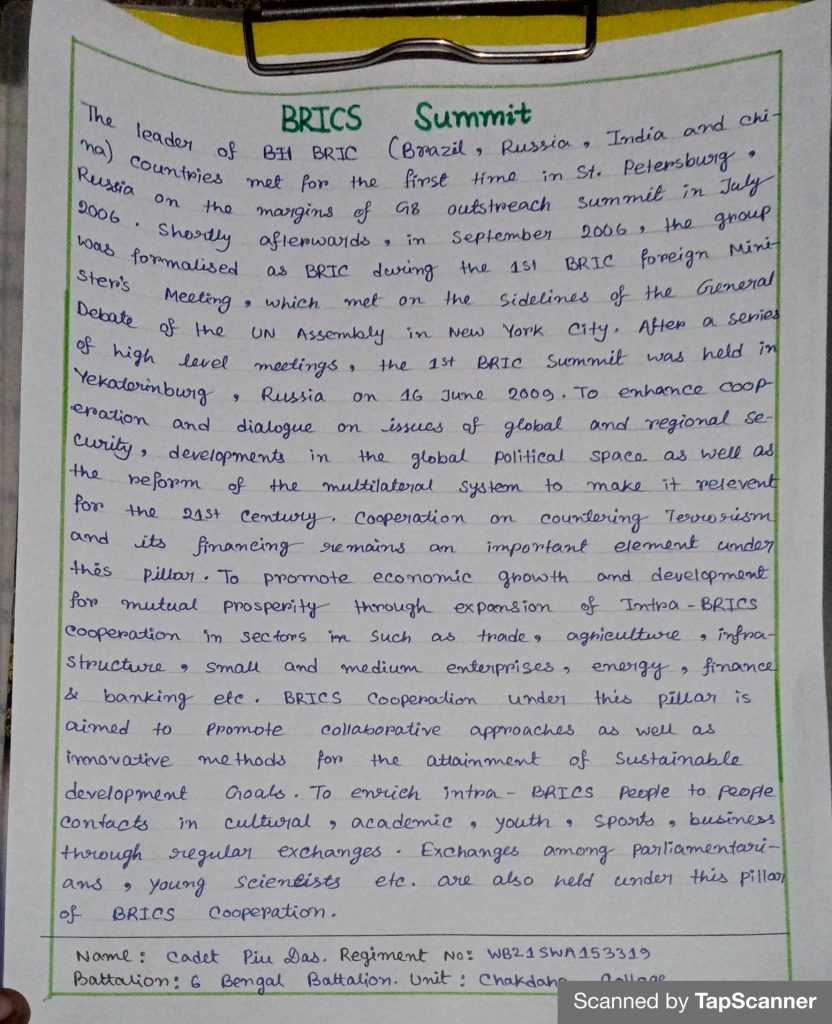 BRICS Summit
The leader of BH BRIC (Brazil, Russia, India and chi-
na) countries met for the first time in St. Petersburg,
Russia on the margins of G8 outstreach summit in July
2006. Shordly afterwards, in September 2006, the group
was formalised as BRIC during the 1st BRIC foreign Mini-
ster's Meeting, which met on the sidelines of the General
Debate of the UN Assembly in New York City. After a series
of high level meetings, the 1st BRIC Summit was held in
Yekaterinburg, Russia on 16 June 2009. To enhance coop-
eration and dialogue on issues of global and regional se-
curity, developments in the global political space as well as
the reform of the multilateral system to make it relevent
for the 21st century. Cooperation on countering Terrorism
and its financing remains an important element under
this pillar. To promote economic growth and development
for mutual prosperity through expansion of Intra-BRICS
cooperation in sectors in such as trade, agriculture, infra-
structure, small and medium enterprises, energy, finance
& banking etc. BRICS Cooperation under this pillar is
aimed to promote collaborative approaches as well as
innovative methods for the attainment of Sustainable
development Goals. To enrich intra-BRICS people to people
contacts in cultural, academic, youth, sports, business
through regular exchanges. Exchanges among parliamentari-
ans, young scientists etc. are also held under this pillar
of BRICS Cooperation.
Name: Cadet Piu Das. Regiment No: WB21SWA153319
Battalion: 6 Bengal Battalion. Unit: Chakdaha College
Scanned by TapScanner